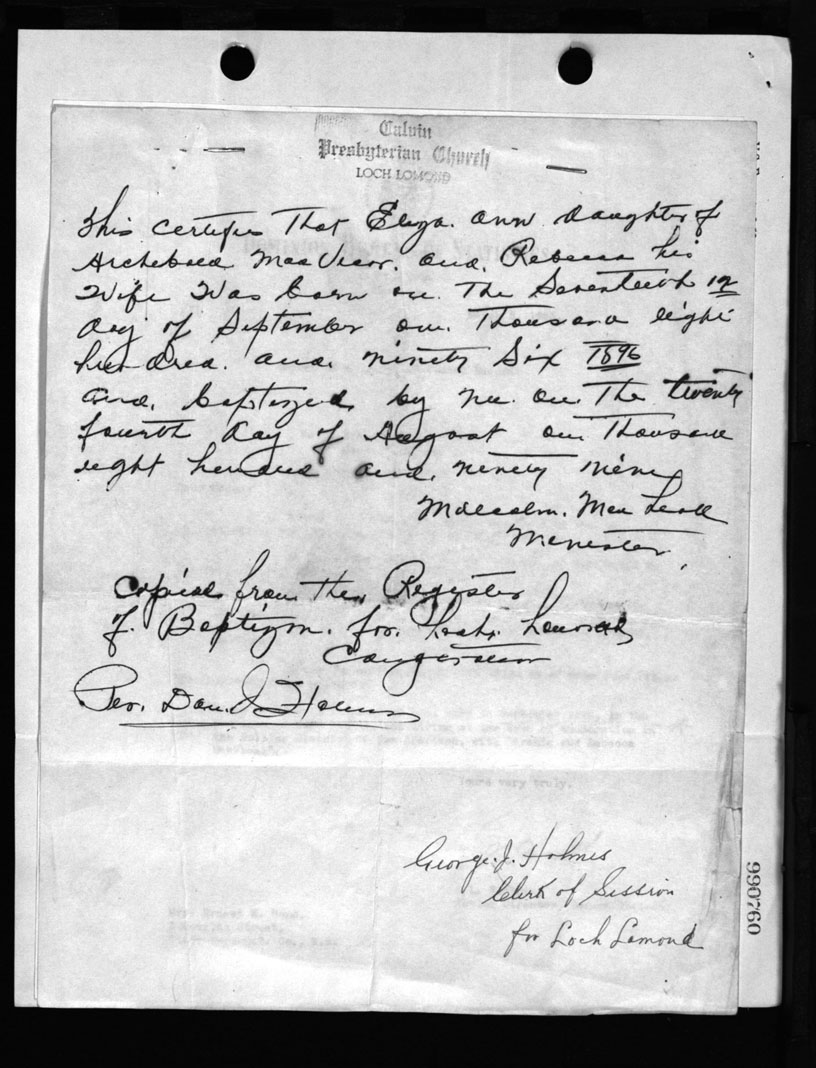 Calvin
Presbyterian Church
LOCH LOMOND
This certifies That Eliza. ann daughter of
Archebald MacVicar. and. Rebecca his
Wife Was born on The Seventeeth
day of September one Thousand eight
hundred. and. ninety Six 1896
and. baptized by me on The twenty
fourth day of August one Thousand
eight hundred and. ninety nine
Malcolm. Mac Leod
Minister.
Copied from the Register
of Baptizm. for. Loch. Lomond
Congregation
Rev. Dan. J Holmes
yours very truly,
George. J. Holmes
Clerk of Session
for Loch Lomond
060766